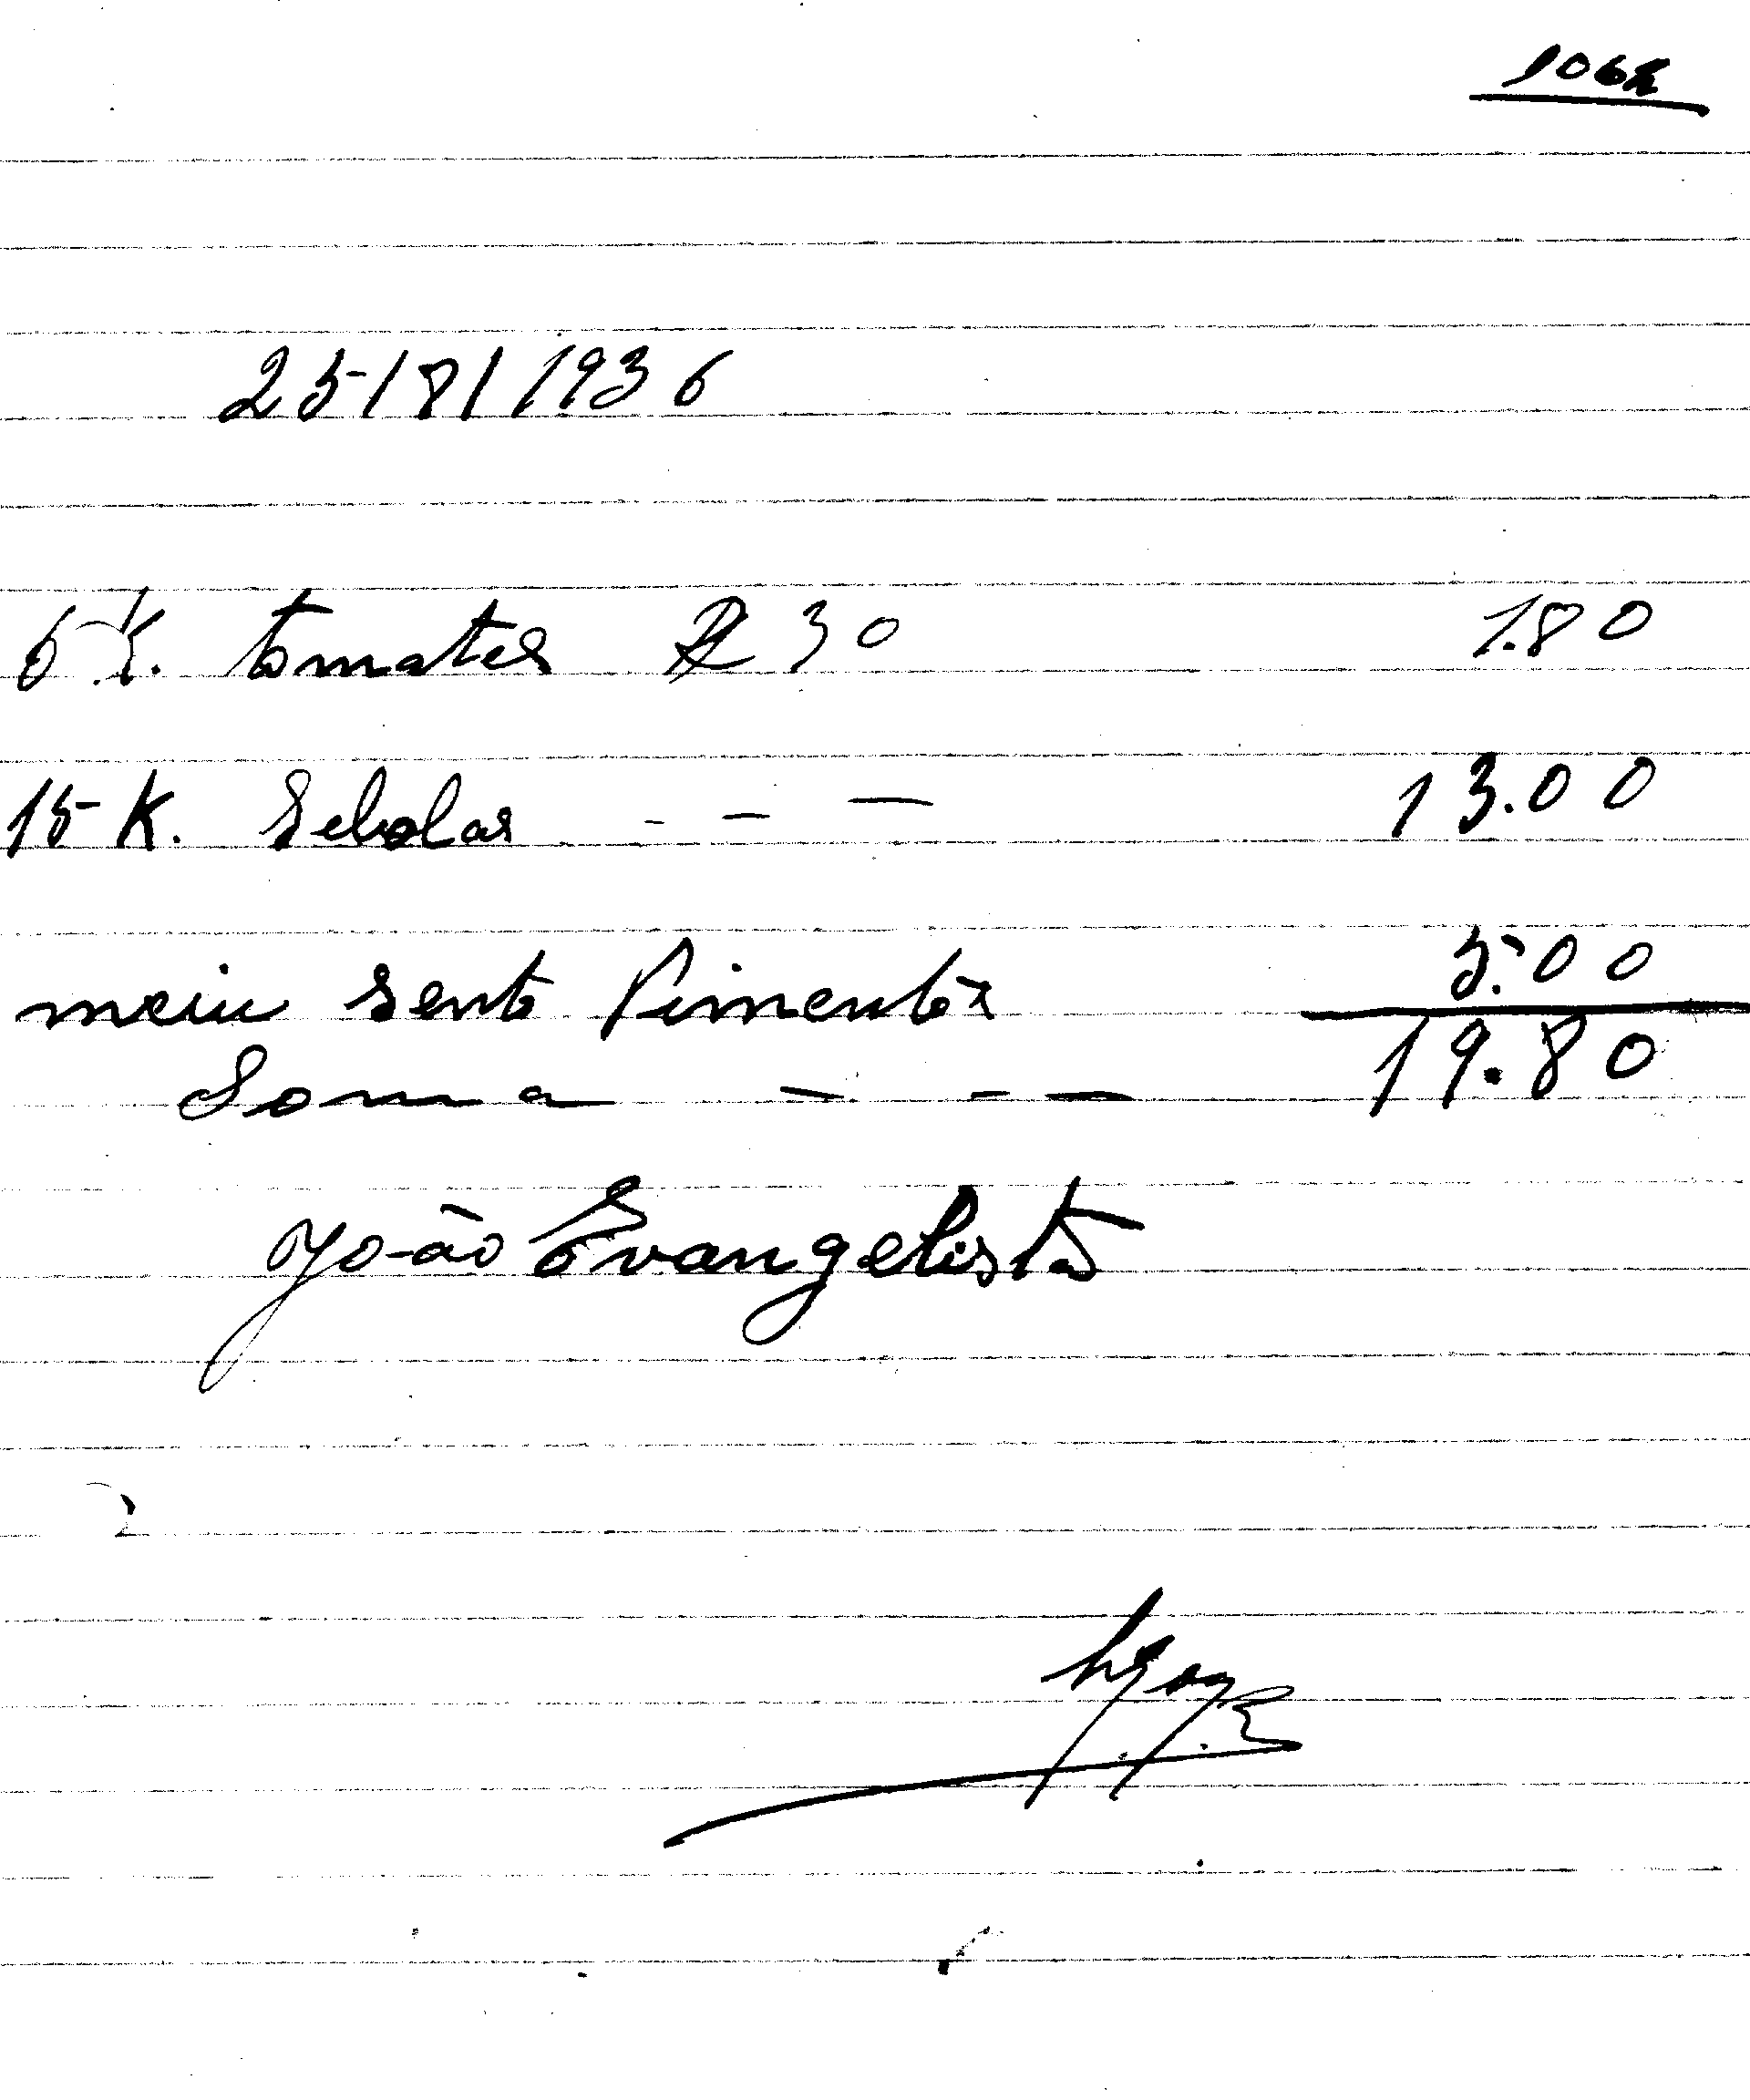 25/8/1936
6 K. tomates R 30 1.80
15 K. Sebolas - - - 13.00
meiu sento Pimentõs 5.00
Soma - - - 19.80
João Evangelista